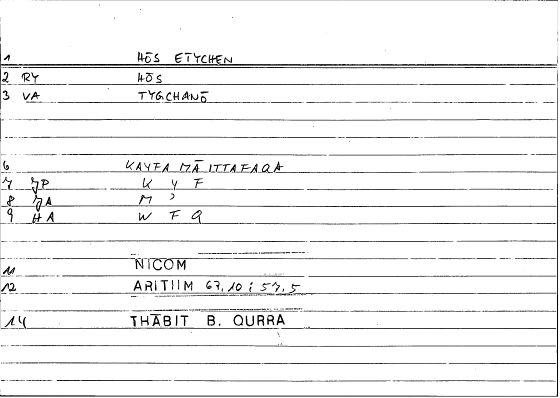 1 HŌS ETYCHEN
2 RY HŌS
3 VA TYGCHANŌ
6 KAYFA MĀ ITTAFAQA
7 JP K Y F
8 JA M ʾ
9 HA W F Q
11 NICOM
12 ARITIIM 67,10 ; 57,5
14 THĀBIT B. QURRA